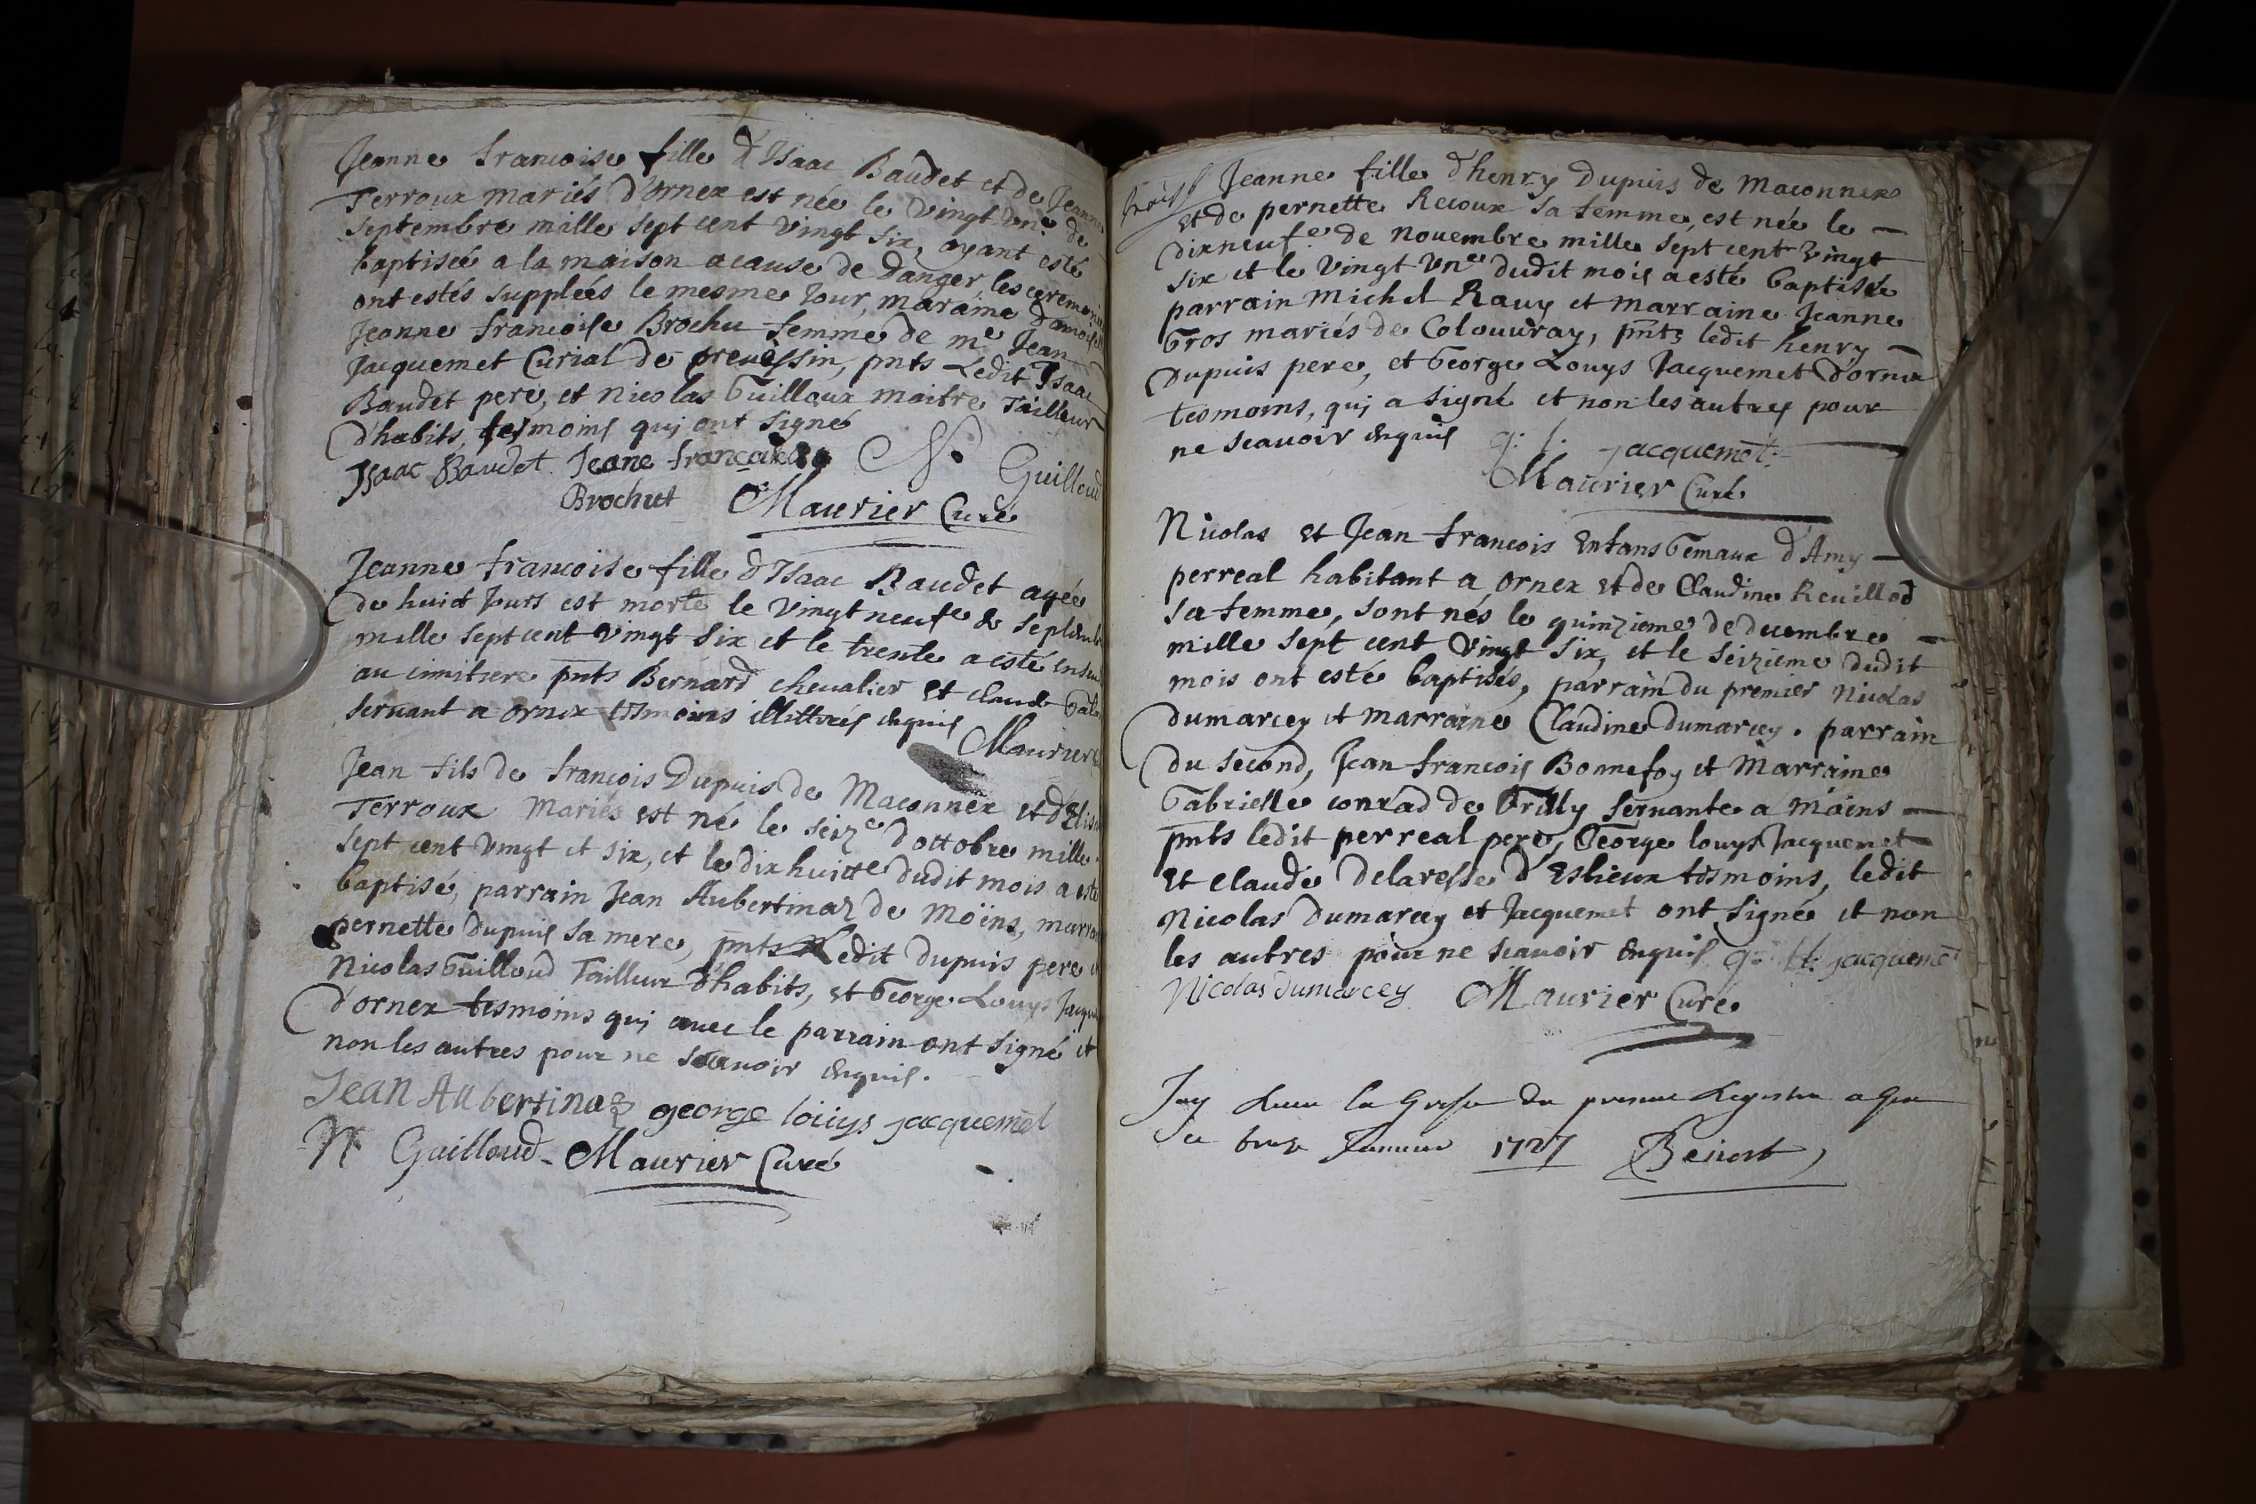 Jeanne francoise fille d'Isaac Baudet et de Jeanne
Terroux mariés d'ornex est née le vingt une de
septembre mille sept cent vingt six, ayant esté
baptisée a la maison acause de danger, les ceremonies
ont estés suppleés le mesme Jour, maraine damois
Jeanne francoise Brochu femme de me Jean
Jacquemet Curial de preuessin, pnts Ledit Isaac
Baudet pere, et Nicolas Guilloux maitre Tailleur
d'habits, tesmoins qui ont signé
Isaac Baudet. Jeane francoise N. Guilloud
Brochut Maurier Curé
Jeanne francoise fille d'Isaac Baudet agée
de huict Jours est morte le vingt neufe de septemb
mille sept cent vingt six et le trente a esté enseu
au cimitiere pnts Bernard chevalier et claude
seruant a ornex tesmoins illitterés enquis
Maurier
Jean fils de francois Dupuis de Maconnex et d'Elis
Terroux Mariés est né le seize d'ottobre mille
sept cent vingt et six, et le dix huitte dudit mois a esté
baptisé, parrain Jean Aubertinaz de Moïns, marra
pernette Dupuis sa mere, pnts Ledit Dupuis pere et
Nicolas Guilloud Tailleur d'habits, et George Louys Jacqu
d'ornex tesmoins qui avec le parrain ont signé et
non les autres pour ne scauoir enquis.
Jean Aubertinaz george loüys jacquemet
N Guilloud Maurier Curé
Jeanne fille d'henry Dupuis de Maconnex
et de pernette Recoux sa femme, est née le
dixneufe de Nouembre mille sept cent vingt
six et le vingt vne dudit mois a esté baptisée
parrain Michel Rauy et marraine Jeanne
Gros mariés de Colouuray, pnts ledit henry
Dupuis pere, et George Louys Jacquemet d'ornex
tesmoins, qui a signé et non les autres pour
ne scauoir enquis g. l. jacquemet
Maurier Curé
Nicolas et Jean francois Enfans Gemaux d'Amy
perreal habitant a ornex et de Claudine Reuillod
sa femme, sont nés le quinzieme de decembre
mille sept cent vingt six, et le seizieme dudit
mois ont esté baptisés, parrain du premier Nicolas
dumarcey et marraine Claudine Dumarcey. parrain
du second, Jean francois Bonnefoy et Marraine
Gabrielle conrad de Grilly seruante a Moins
pnts ledit perreal pere, George louys Jacquemet
et claude Delaresse d'Eshieux tesmoins, ledit
Nicolas dumarcey et Jacquemet ont signé et non
les autres pour ne scauoir enquis g: ll: jacquemet
Nicolas dumarcey Maurier Curé
Jay la du present Registre a Gex
1727 Benoit